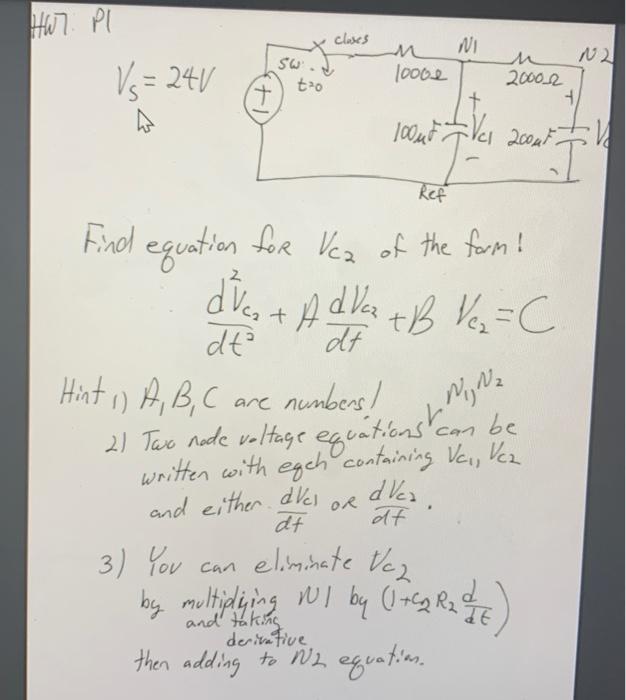 HW7. P1
closes
N1
N2
SW.
t=0
1000Ω
2000Ω
Vs = 24V
+
+
+
100μF
Vc1
200μF
V
-
-
-
Ref
Find equation for Vc2 of the form!
d²Vc2/dt² + A dVc2/dt + B Vc2 = C
Hint 1) A, B, C are numbers!
N1, N2
2) Two node voltage equations can be
written with each containing Vc1, Vc2
and either dVc1/dt or dVc2/dt.
3) You can eliminate Vc2
by multiplying N1 by (1+C2 R2 d/dt)
and taking
derivative
then adding to N2 equation.